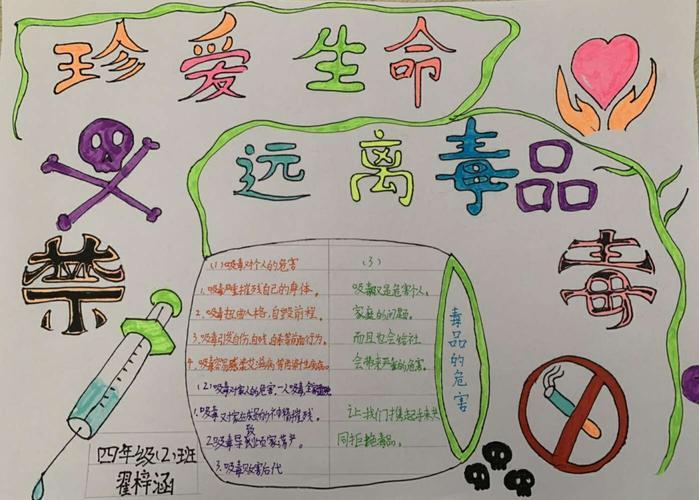 珍爱生命
远离毒品
禁
毒
(1)吸毒对个人的危害
1.吸毒严重摧残自己的身体。
2.吸毒扭曲人格,自毁前程。
3.吸毒引发自伤、自残、自杀等
4.吸毒容易感染艾滋病
(2)吸毒对家人的危害,一人吸毒全家
1.吸毒对家
2.吸毒导致
3.吸毒贻害后代
(3)
吸毒不仅是危害个人、
家庭的问题,
而且也会给社
会带来严重的危害。
让我们
同拒绝毒品。
毒品的危害
四年级(2)班
翟梓涵